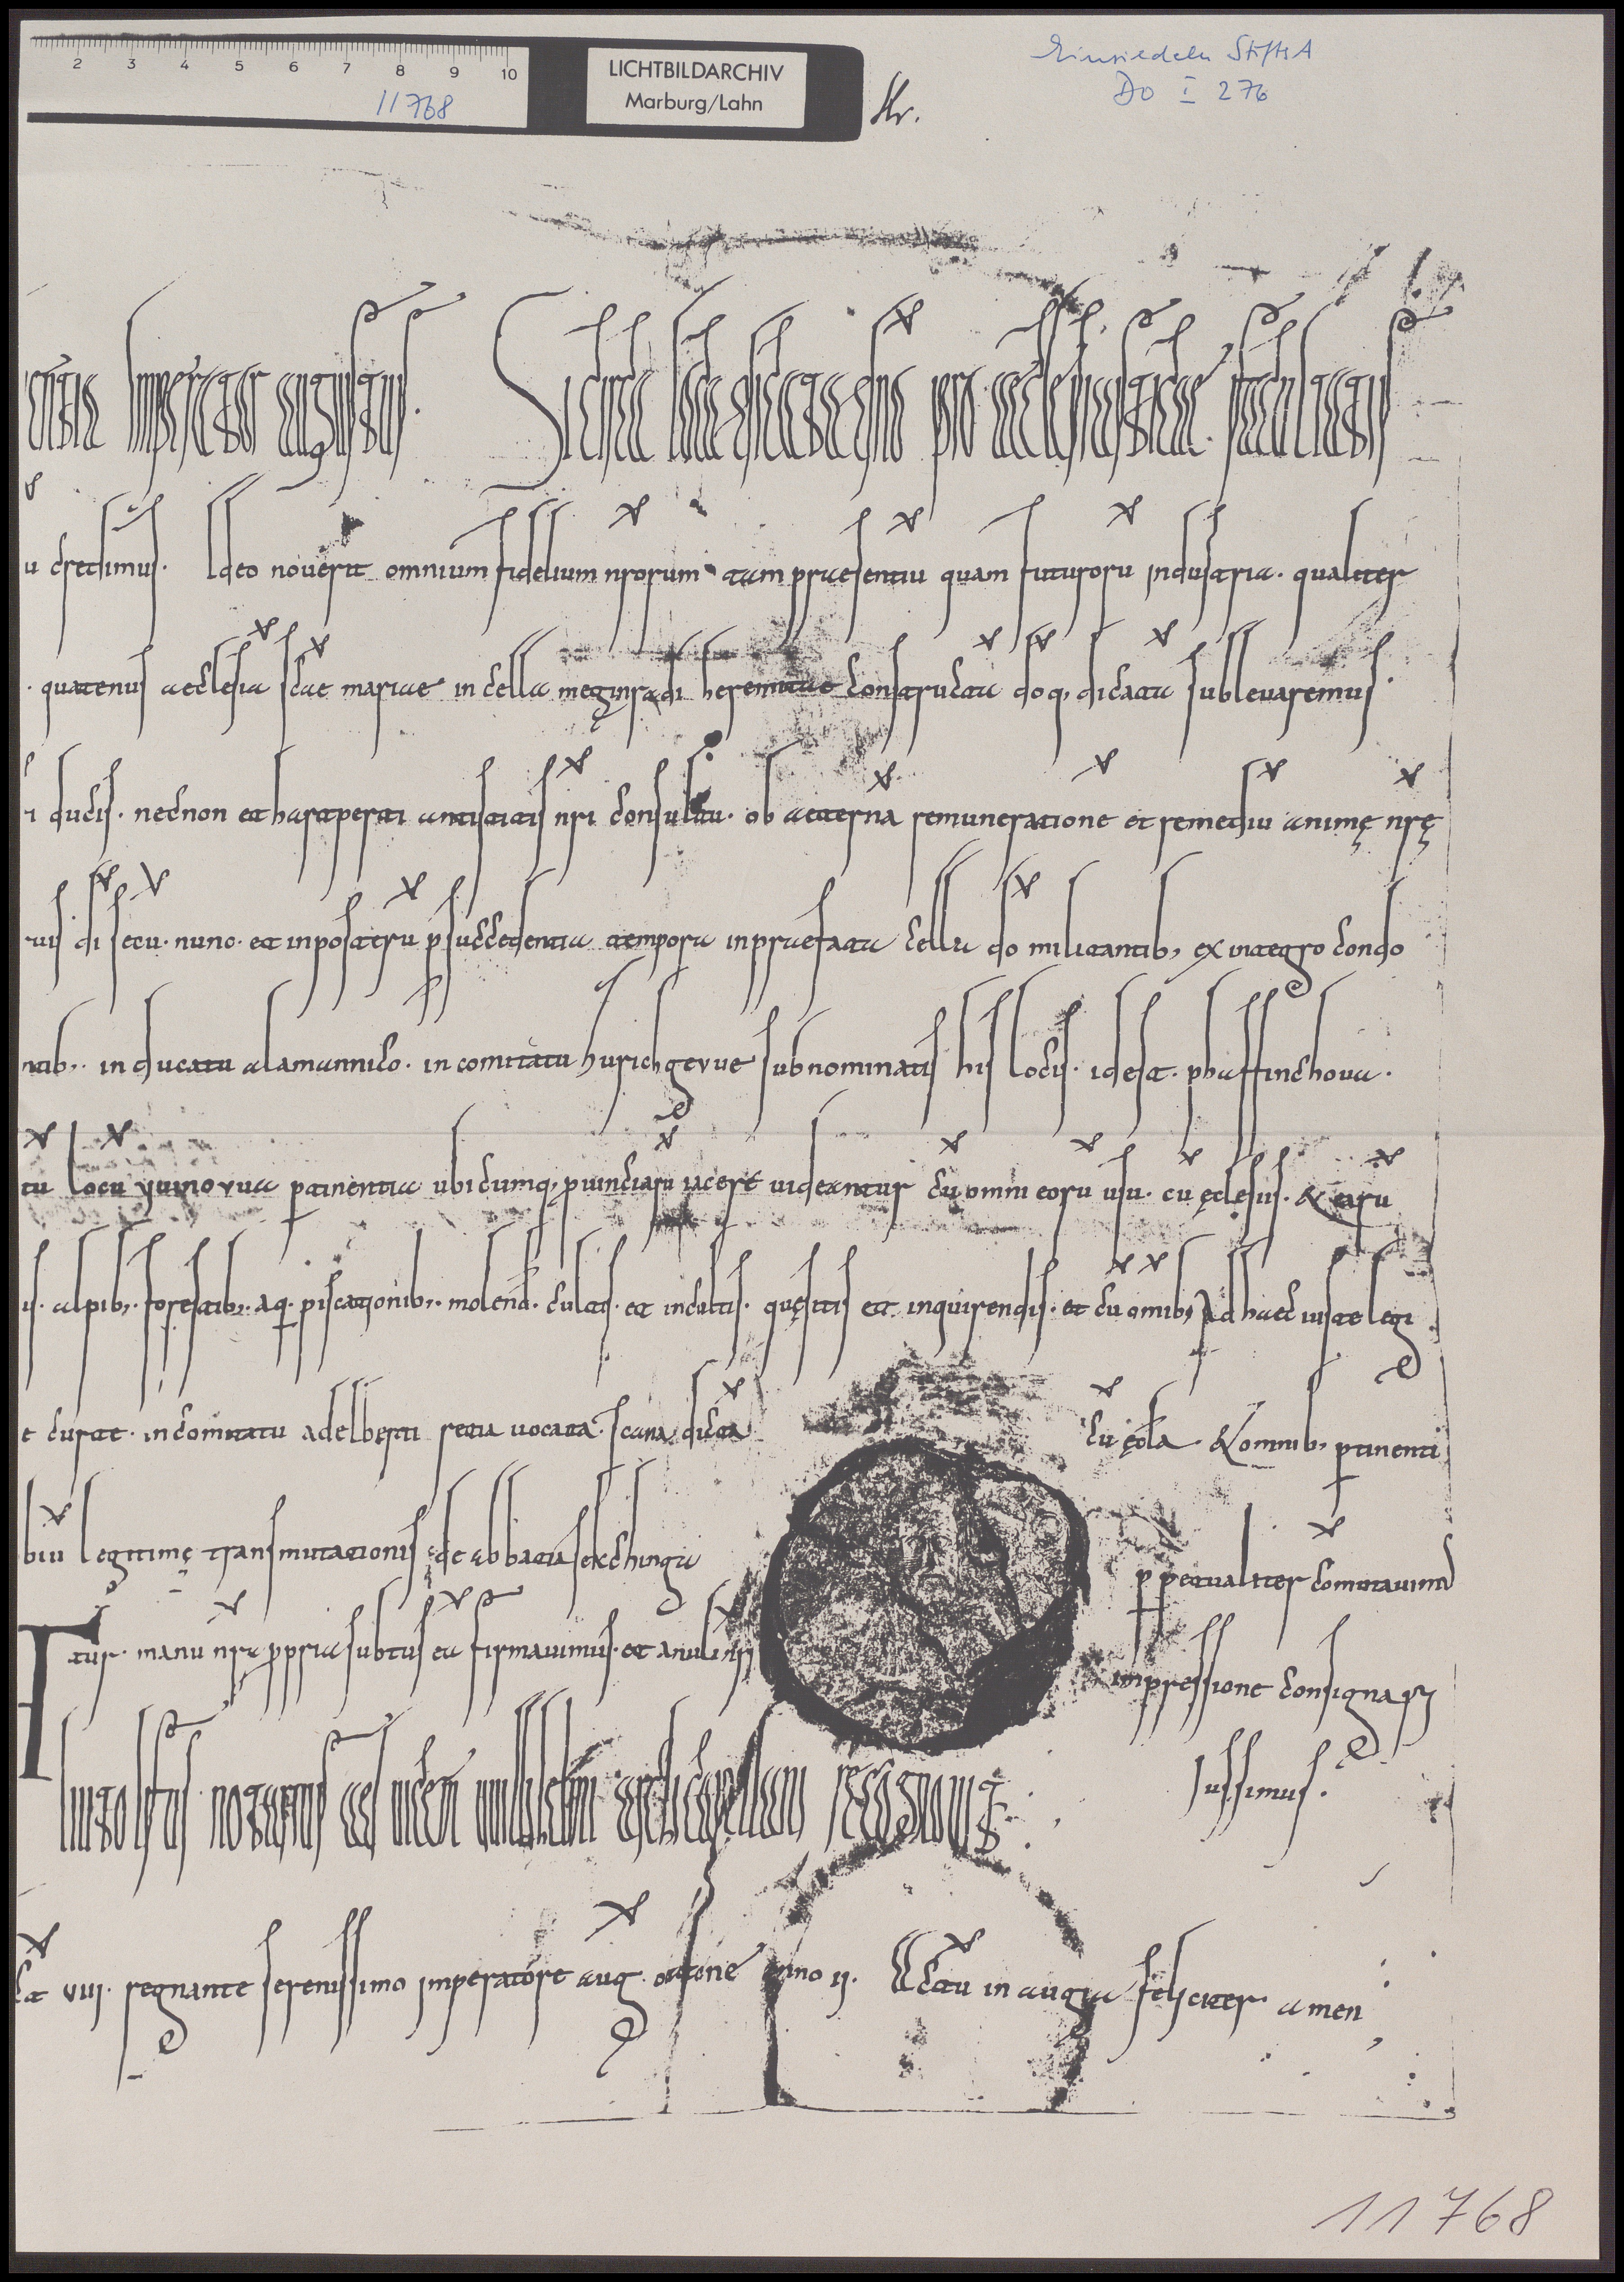 2 3 4 5 6 7 8 9 10
11768
LICHTBILDARCHIV
Marburg/Lahn
Nr.
Einsiedeln StiftsA
DO I 276
Imperator augustus. Si circa loca dicata dno pro aecclesiasticae facultatis
u credimus. Ideo noverit omnium fidelium nrorum tam praesentiu quam futuroru industria. qualiter
. quatenus aeclesia scae mariae in cella meginradi heremitae constructa doq, dicata sublevaremus.
i ducis. necnon et hartperti antistitis nri consultu. ob aeterna remuneratione et remediu animę nrę
di secu. nunc. et in posteru p succedentia tempora in praefata cella do militantib, ex integro condo
ntib,. in ducatu alamannico. in comitatu hurichgevue subnominatis his locis. id est. phaffinchova.
tu locu ptinentia ubicumq, puinciaru iacere videantur cu omni eoru usu. cu ęclesiis. & earu
is. alpib,. forestib,. aq. piscationib,. molend. cultis. et incultis. quęsitis et inquirendis. et cu omib, ad haec iuste legi
e curte. in comitatu adelberti retia vocata. scana dicta cu ęcla. & omnib, ptinenti
biu legitimę transmutationis de abbatia sekchinga ppetualiter commutavimus
tur. manu nra ppria subtus ea firmavimus. et anuli nri impressione consignari
iussimus.
Liutolfus notarius ad vicem uuillihelmi archicapellani recognovi
viii. regnante serenissimo imperatore aug. ottone anno ii. Actu in augia feliciter amen
11768